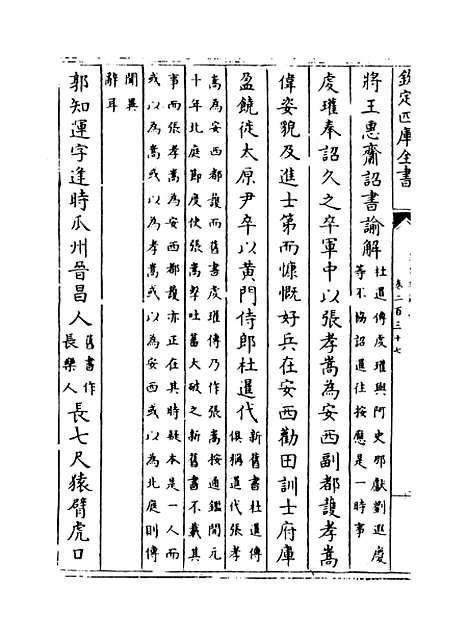 欽定四庫全書
卷二百三十七
將王惠齎詔書諭解
杜暹傳虔瓘與阿史那獻劉遐慶
等不協詔暹往按應是一時事
虔瓘奉詔久之卒軍中以張孝嵩為安西副都護孝嵩
偉姿貌及進士第而慷慨好兵在安西勸田訓士府庫
盈饒徙太原尹卒以黄門侍郎杜暹代
新舊書杜暹傳
俱稱暹代張孝
嵩為安西都護而舊書虔瓘傳乃作張嵩按通鑑開元
十年北庭節度使張嵩擊吐蕃大破之新舊書不載其
事而張孝嵩為安西都護亦正在其時疑本是一人而
或以為嵩或以為孝嵩或以為安西或以為北庭則傳
聞異
辭耳
郭知運字逢時瓜州晉昌人
舊書作
長樂人
長七尺猿臂虎口